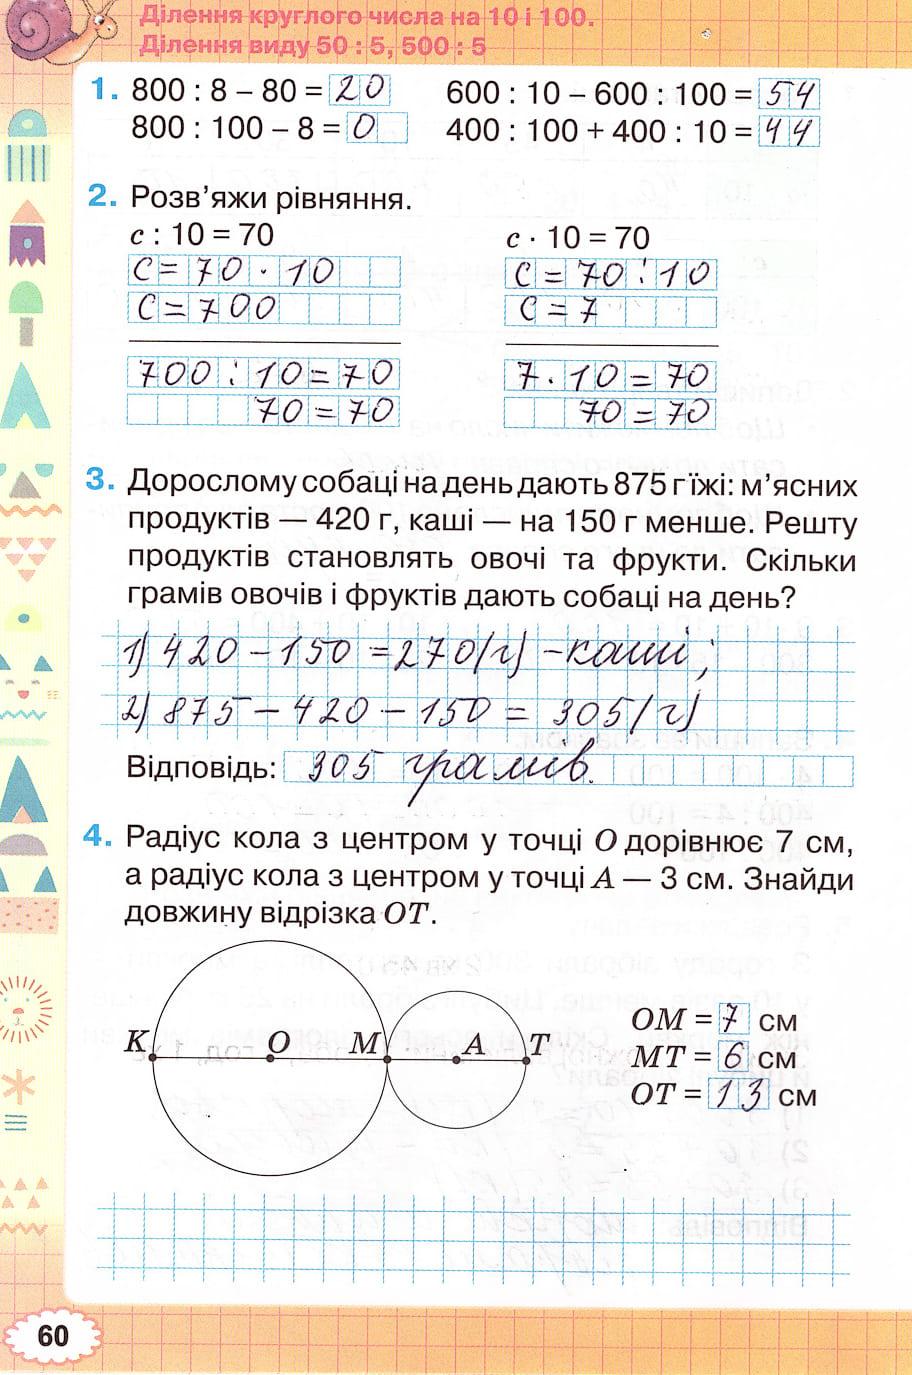 Ділення круглого числа на 10 і 100.
Ділення виду 50 : 5, 500 : 5
1. 800 : 8 – 80 = 20 600 : 10 – 600 : 100 = 54
800 : 100 – 8 = 0 400 : 100 + 400 : 10 = 44
2. Розв’яжи рівняння.
c : 10 = 70 c · 10 = 70
c = 70 · 10 c = 70 : 10
c = 700 c = 7
700 : 10 = 70 7 · 10 = 70
70 = 70 70 = 70
3. Дорослому собаці на день дають 875 г їжі: м’ясних
продуктів — 420 г, каші — на 150 г менше. Решту
продуктів становлять овочі та фрукти. Скільки
грамів овочів і фруктів дають собаці на день?
1) 420 – 150 = 270 (г) – каші;
2) 875 – 420 – 150 = 305 (г)
Відповідь: 305 грамів.
4. Радіус кола з центром у точці O дорівнює 7 см,
а радіус кола з центром у точці A — 3 см. Знайди
довжину відрізка OT.
K O M A T
OM = 7 см
MT = 6 см
OT = 13 см
60